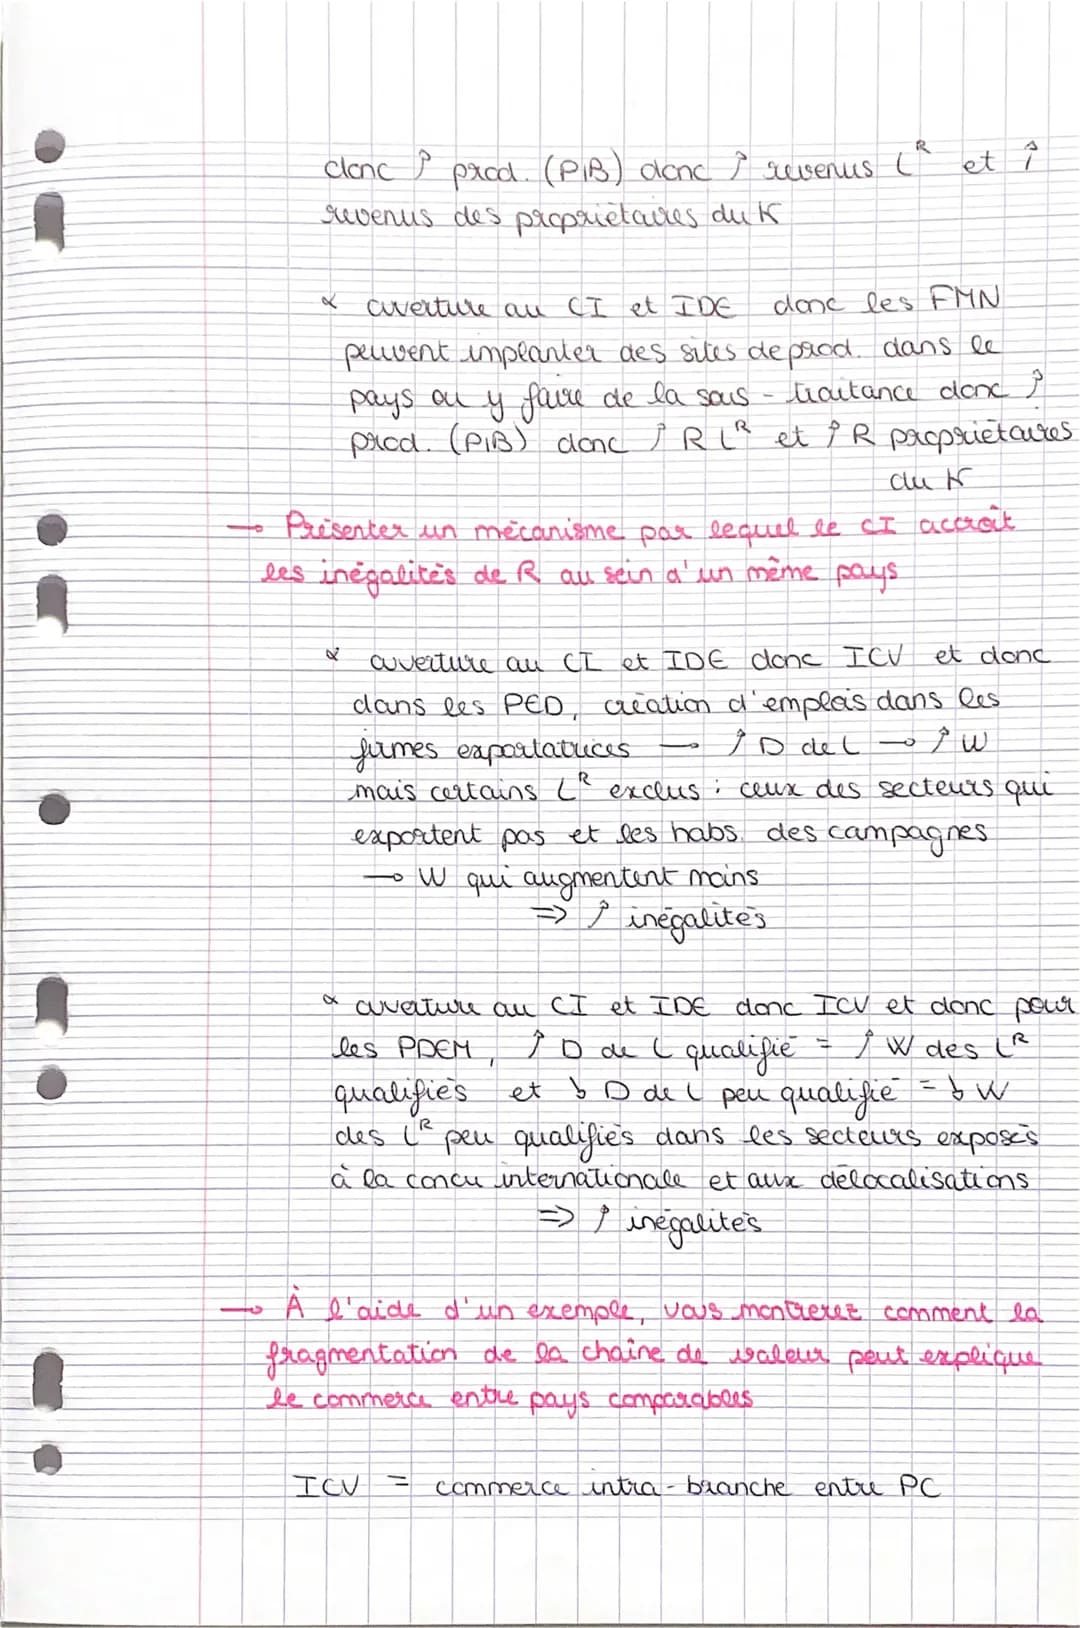 donc ↑ prod. (PIB) donc ↑ revenus L^R et ↑
revenus des propriétaires du K
∝ ouverture au CI et IDE donc les FMN
peuvent implanter des sites de prod. dans le
pays ou y faire de la sous-traitance donc ↑
prod. (PIB) donc ↑ R L^R et ↑ R propriétaires
du K
→ Présenter un mécanisme par lequel le CI accroît
les inégalités de R au sein d'un même pays
∝ ouverture au CI et IDE donc ICV et donc
dans les PED, création d'emplois dans les
firmes exportatrices → ↑ D de L → ↑ W
mais certains L^R exclus : ceux des secteurs qui
exportent pas et les habs. des campagnes
→ W qui augmentent moins
⇒ ↑ inégalités
∝ ouverture au CI et IDE donc ICV et donc pour
les PDEM, ↑ D de L qualifié = ↑ W des L^R
qualifiés et ↓ D de L peu qualifié = ↓ W
des L^R peu qualifiés dans les secteurs exposés
à la concu internationale et aux délocalisations
⇒ ↑ inégalités
→ À l'aide d'un exemple, vous montrerez comment la
fragmentation de la chaîne de valeur peut explique
le commerce entre pays comparables
ICV = commerce intra-branche entre PC